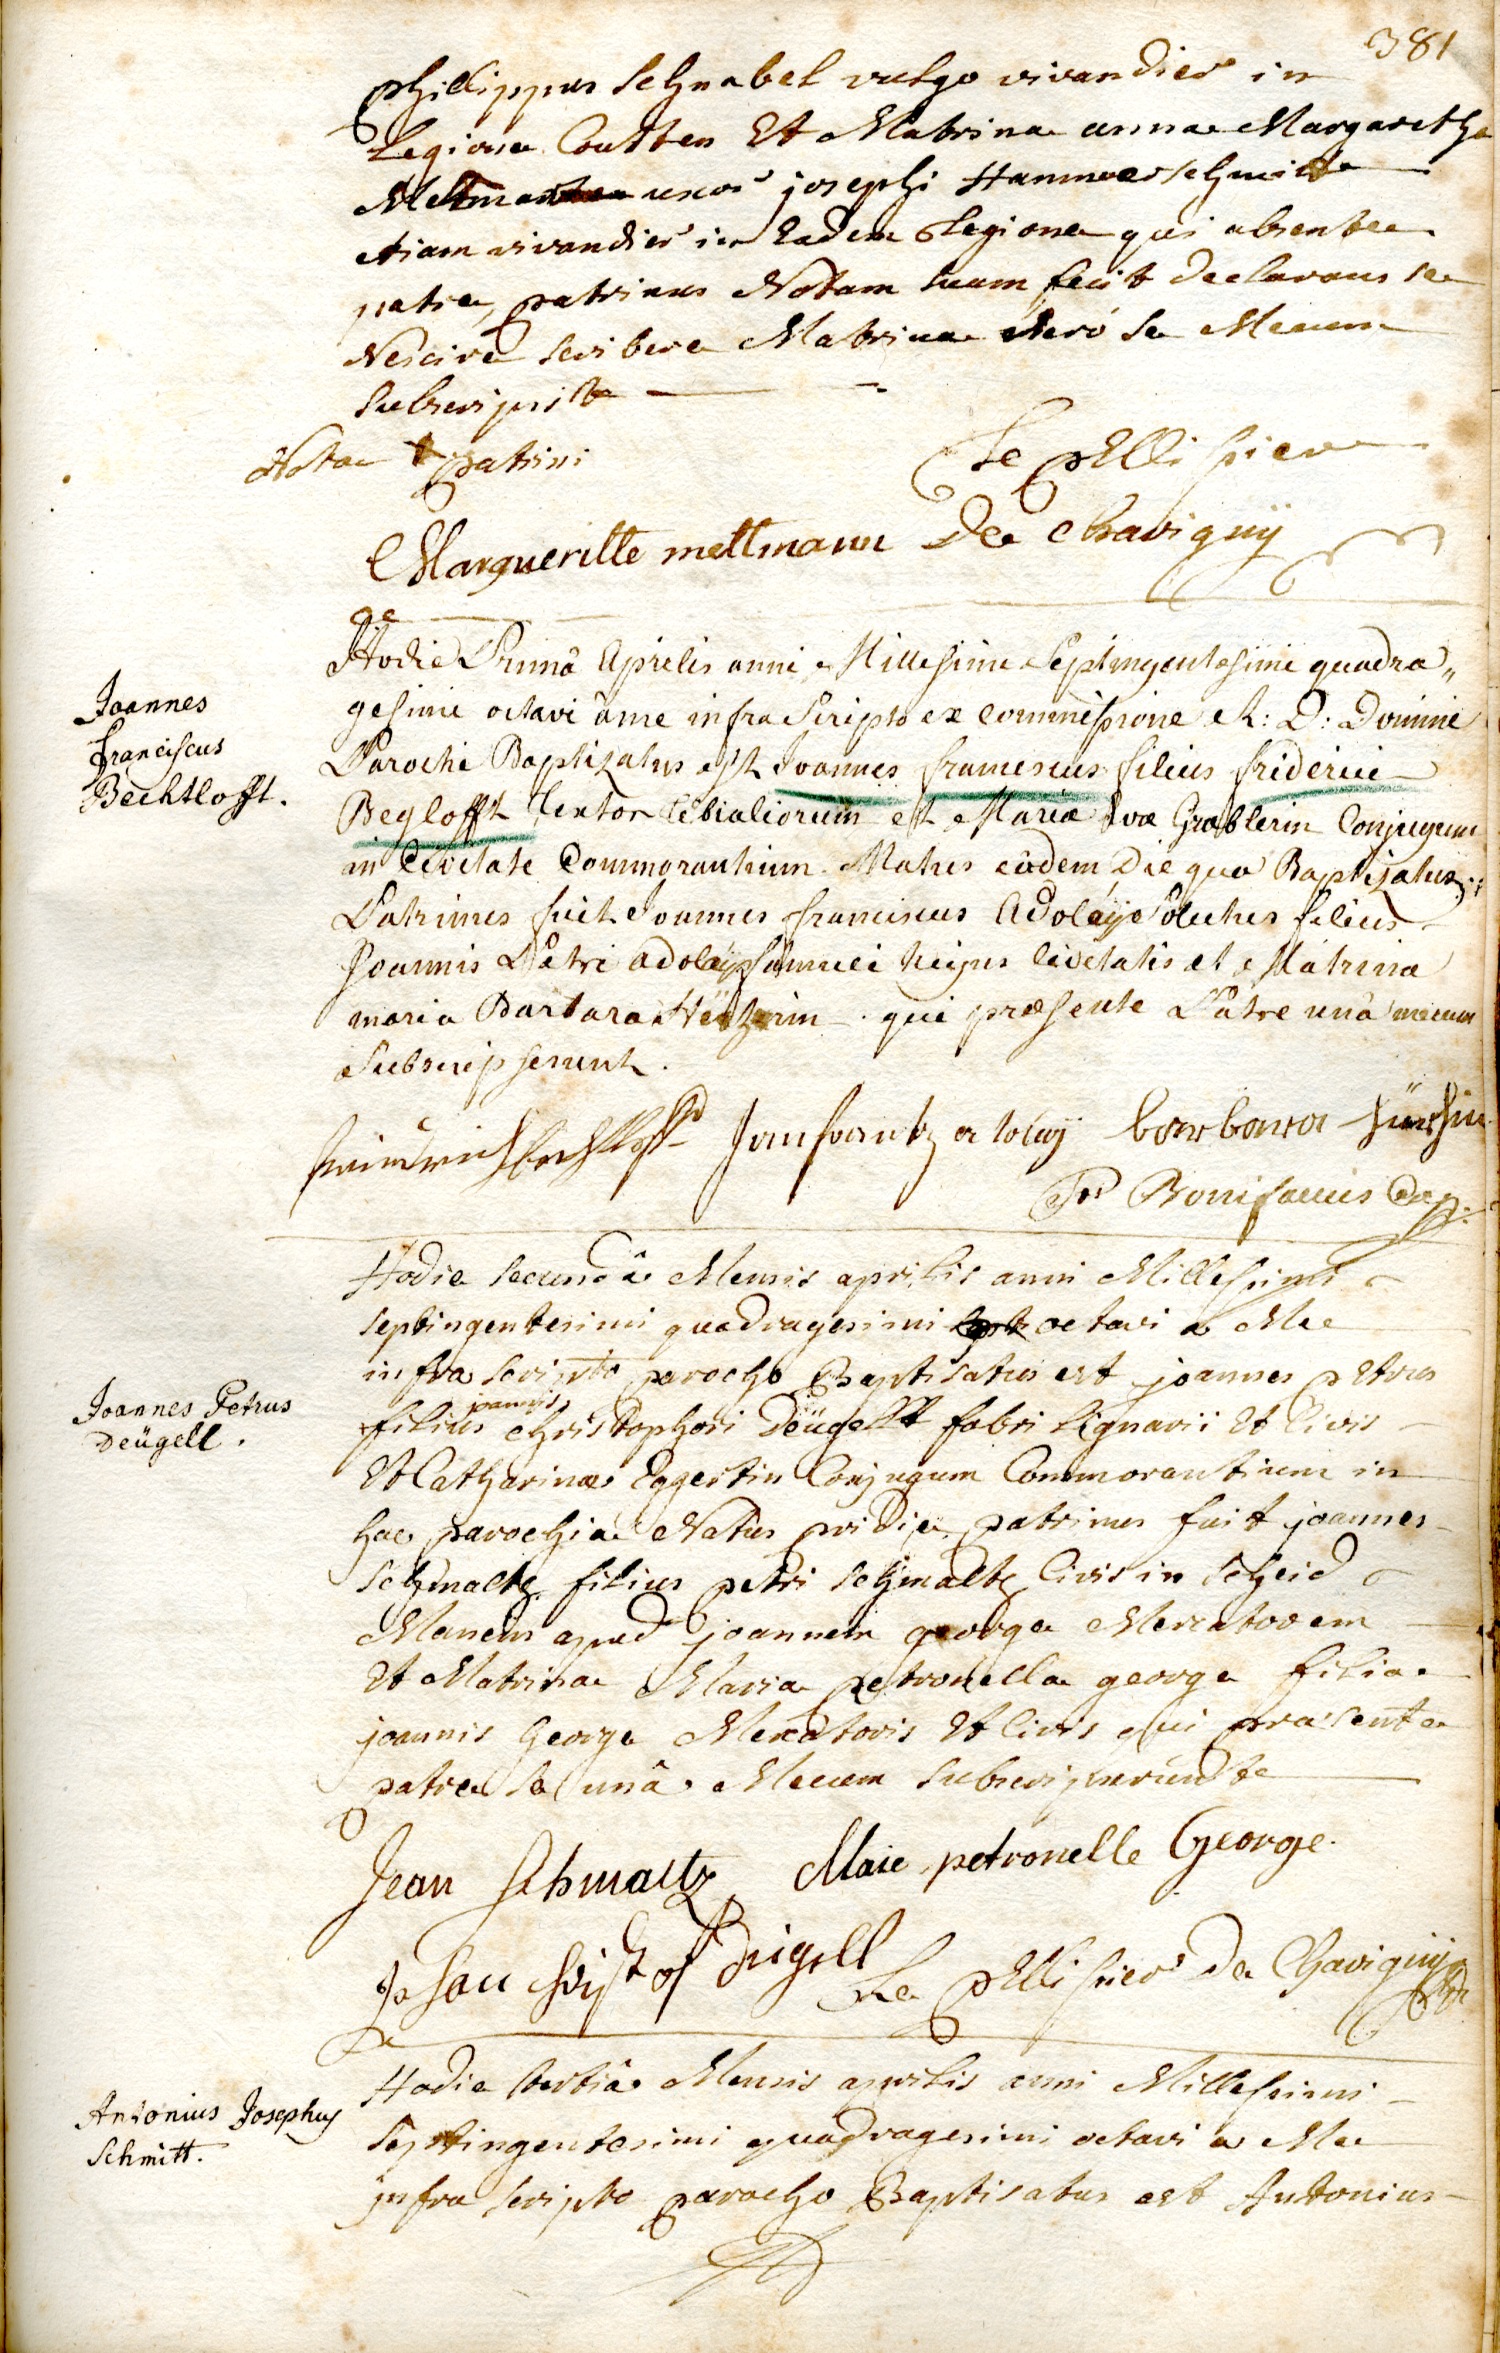 381
Phillippus Schnabel vulgo vivandier in
Legione Coutten Et Matrina anna Margaretha
Metman uxor josephi Hammerschmitt
etiam vivandier in Eadem Legione qui absente
patre, patrinus Notam suam fecit declarans se
Nescire scribere Matrina vero se Mecum
subscripsit
Nota + patrini
Le pellissier
Margueritte mettmann De chavignÿ
Joannes
Franciscus
Bechtlofft.
Hodie Primâ Aprilis anni Millesimi Septingentesimi quadra„
gesimi octavi â me infra Scripto ex commissione R: D: Domini
Parochi Baptizatus est Joannes franciscus filius friderici
Beglofft textor tibialiorum et Mariæ Evæ Grablerin Conjugum
in Civitate Commorantium. Natus eâdem Die qua Baptizatus;
Patrinus fuit Joannes franciscus Adolaÿ Solutus filius
Joannis Petri adolaÿ famuli hujus civitatis et Matrina
maria Barbara qui præsente Patre unâ mecum
Subscripserunt.
barbara
Bonifacius
Joannes Petrus
Deügell.
Hodie secundâ Mensis aprilis anni Millesimi
septingentesimi quadragesimi octavi a Me
infra scripto parocho Baptisatus est joannes petrus
joannis
filius christophori Deügell fabri lignarii Et Civis
Et Catharinæ Eggertin Conjugum Commorantium in
hac parochia Natus pridie patrinus fuit joannes
schmaltz filius petri schmaltz Civis in scheid
Manens apud joannem george Mercatorem
Et Matrina Maria petronella george filia
joannis George Mercatoris Et Civis qui præsente
patre se unâ Mecum subscripserunt
Jean schmaltz Marie petronelle George
Johan christof
Le pellissier de Chavignÿ
Antonius Josephus
Schmitt.
Hodie tertiâ Mensis aprilis anni Millesimi
septingentesimi quadragesimi octavi a Me
infra scripto parocho Baptisatus est Antonius